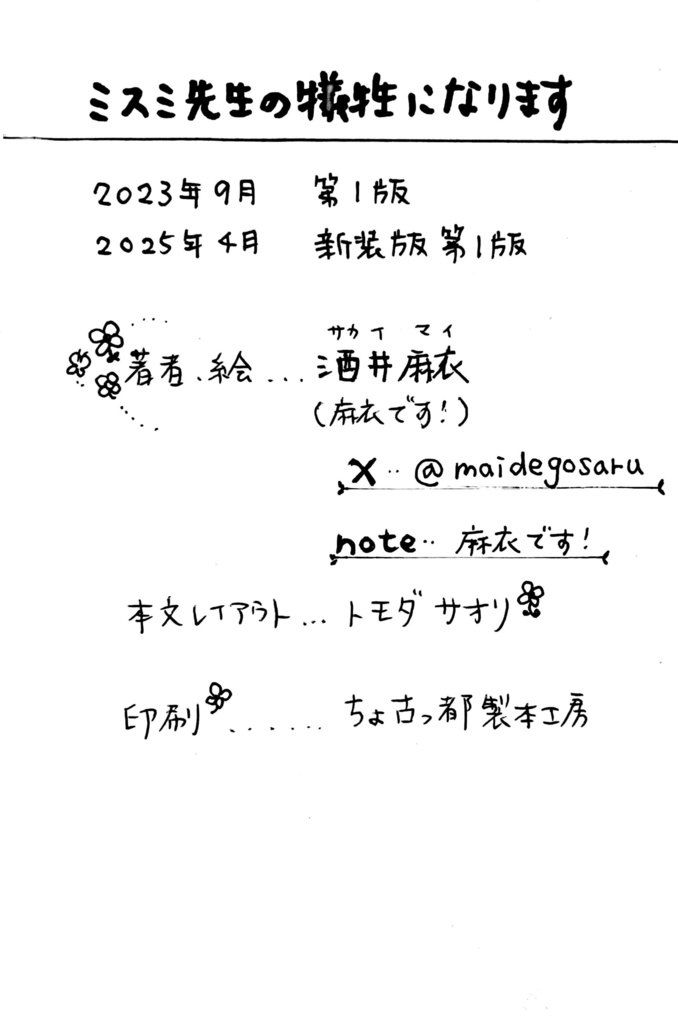 ミスミ先生の犠牲になります
2023年9月 第1版
2025年4月 新装版 第1版
サカイ マイ
著者、絵...酒井麻衣
(麻衣です!)
X‥@maidegosaru
note‥麻衣です!
本文レイアウト...トモダ サオリ
印刷......ちょ古っ都製本工房